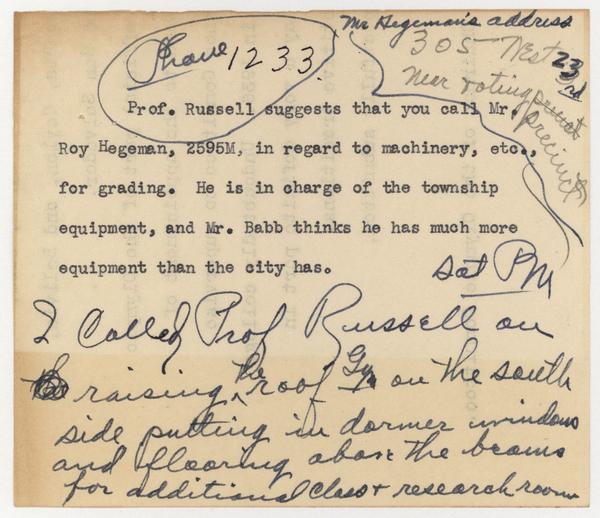 Mr Hegeman's address
305 West 23rd
near voting
precinct
Phone 1233
Prof. Russell suggests that you call Mr.
Roy Hegeman, 2595M, in regard to machinery, etc.,
for grading. He is in charge of the township
equipment, and Mr. Babb thinks he has much more
equipment than the city has.
Sat PM
I Called Prof Russell on
raising the roof Gym on the south
side putting in dormer windows
and flooring above the beams
for additional class + research room